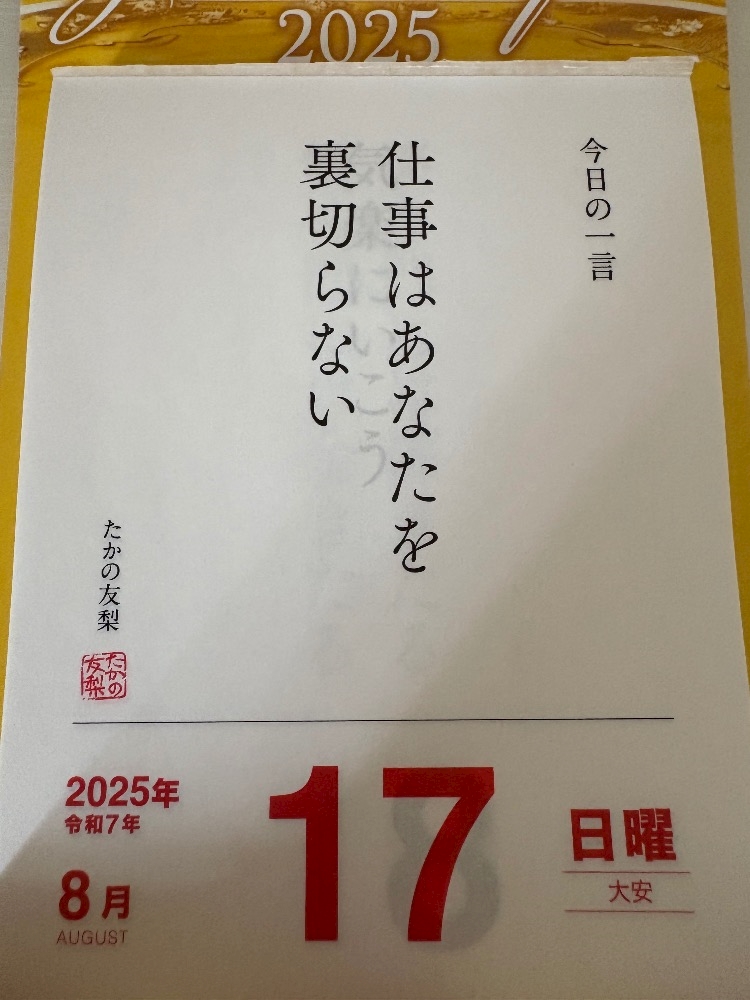 2025
今日の一言
仕事はあなたを
裏切らない
たかの友梨
たかの
友梨
2025年
令和7年
8月
AUGUST
17
日曜
大安